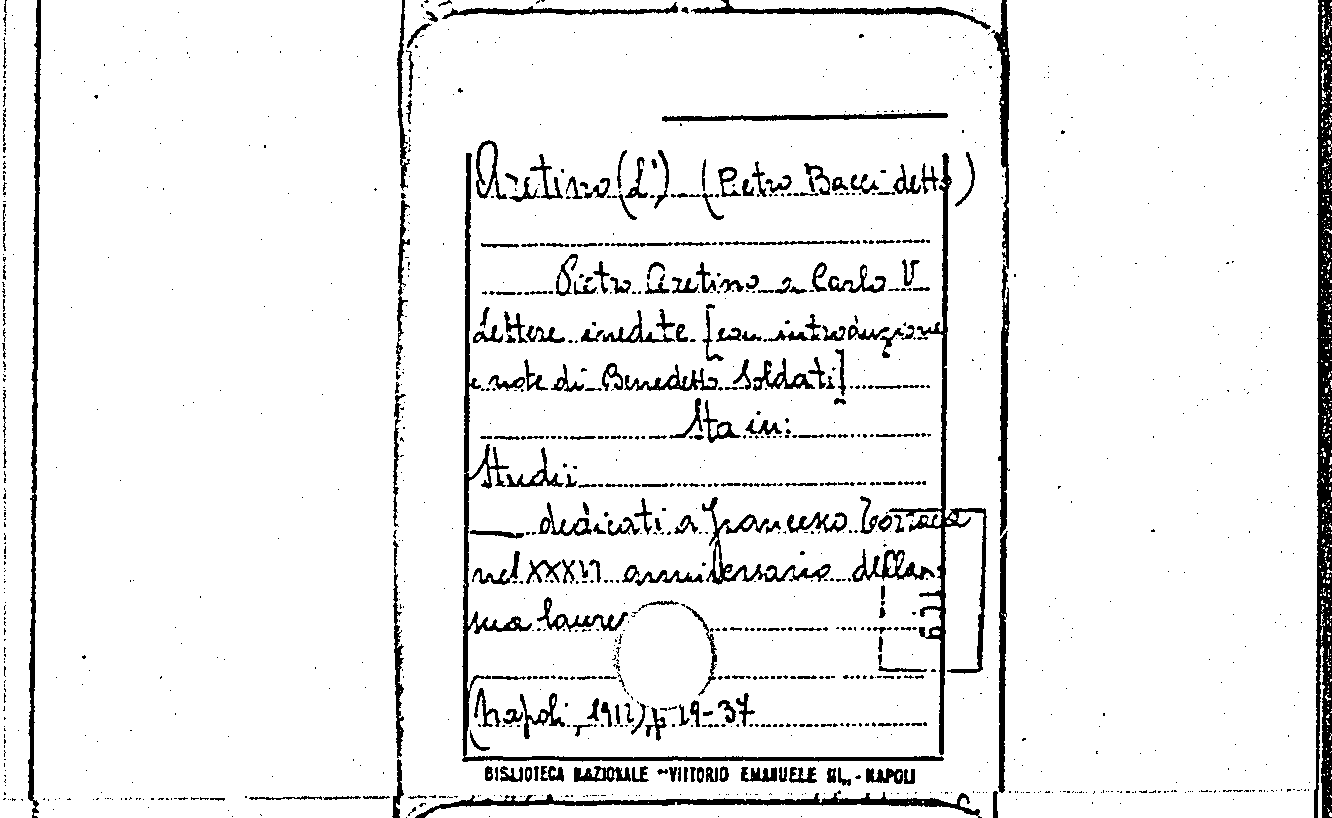 Aretino (L') (Pietro Bacci detto)
Pietro Aretino a Carlo V
Lettere inedite [con introduzione
e note di Benedetto Soldati]
Sta in:
Studii
dedicati a Francesco Torraca
nel XXXVI anniversario della
sua laurea
(Napoli, 1912), p. 19-37
BIBLIOTECA NAZIONALE "VITTORIO EMANUELE III" - NAPOLI